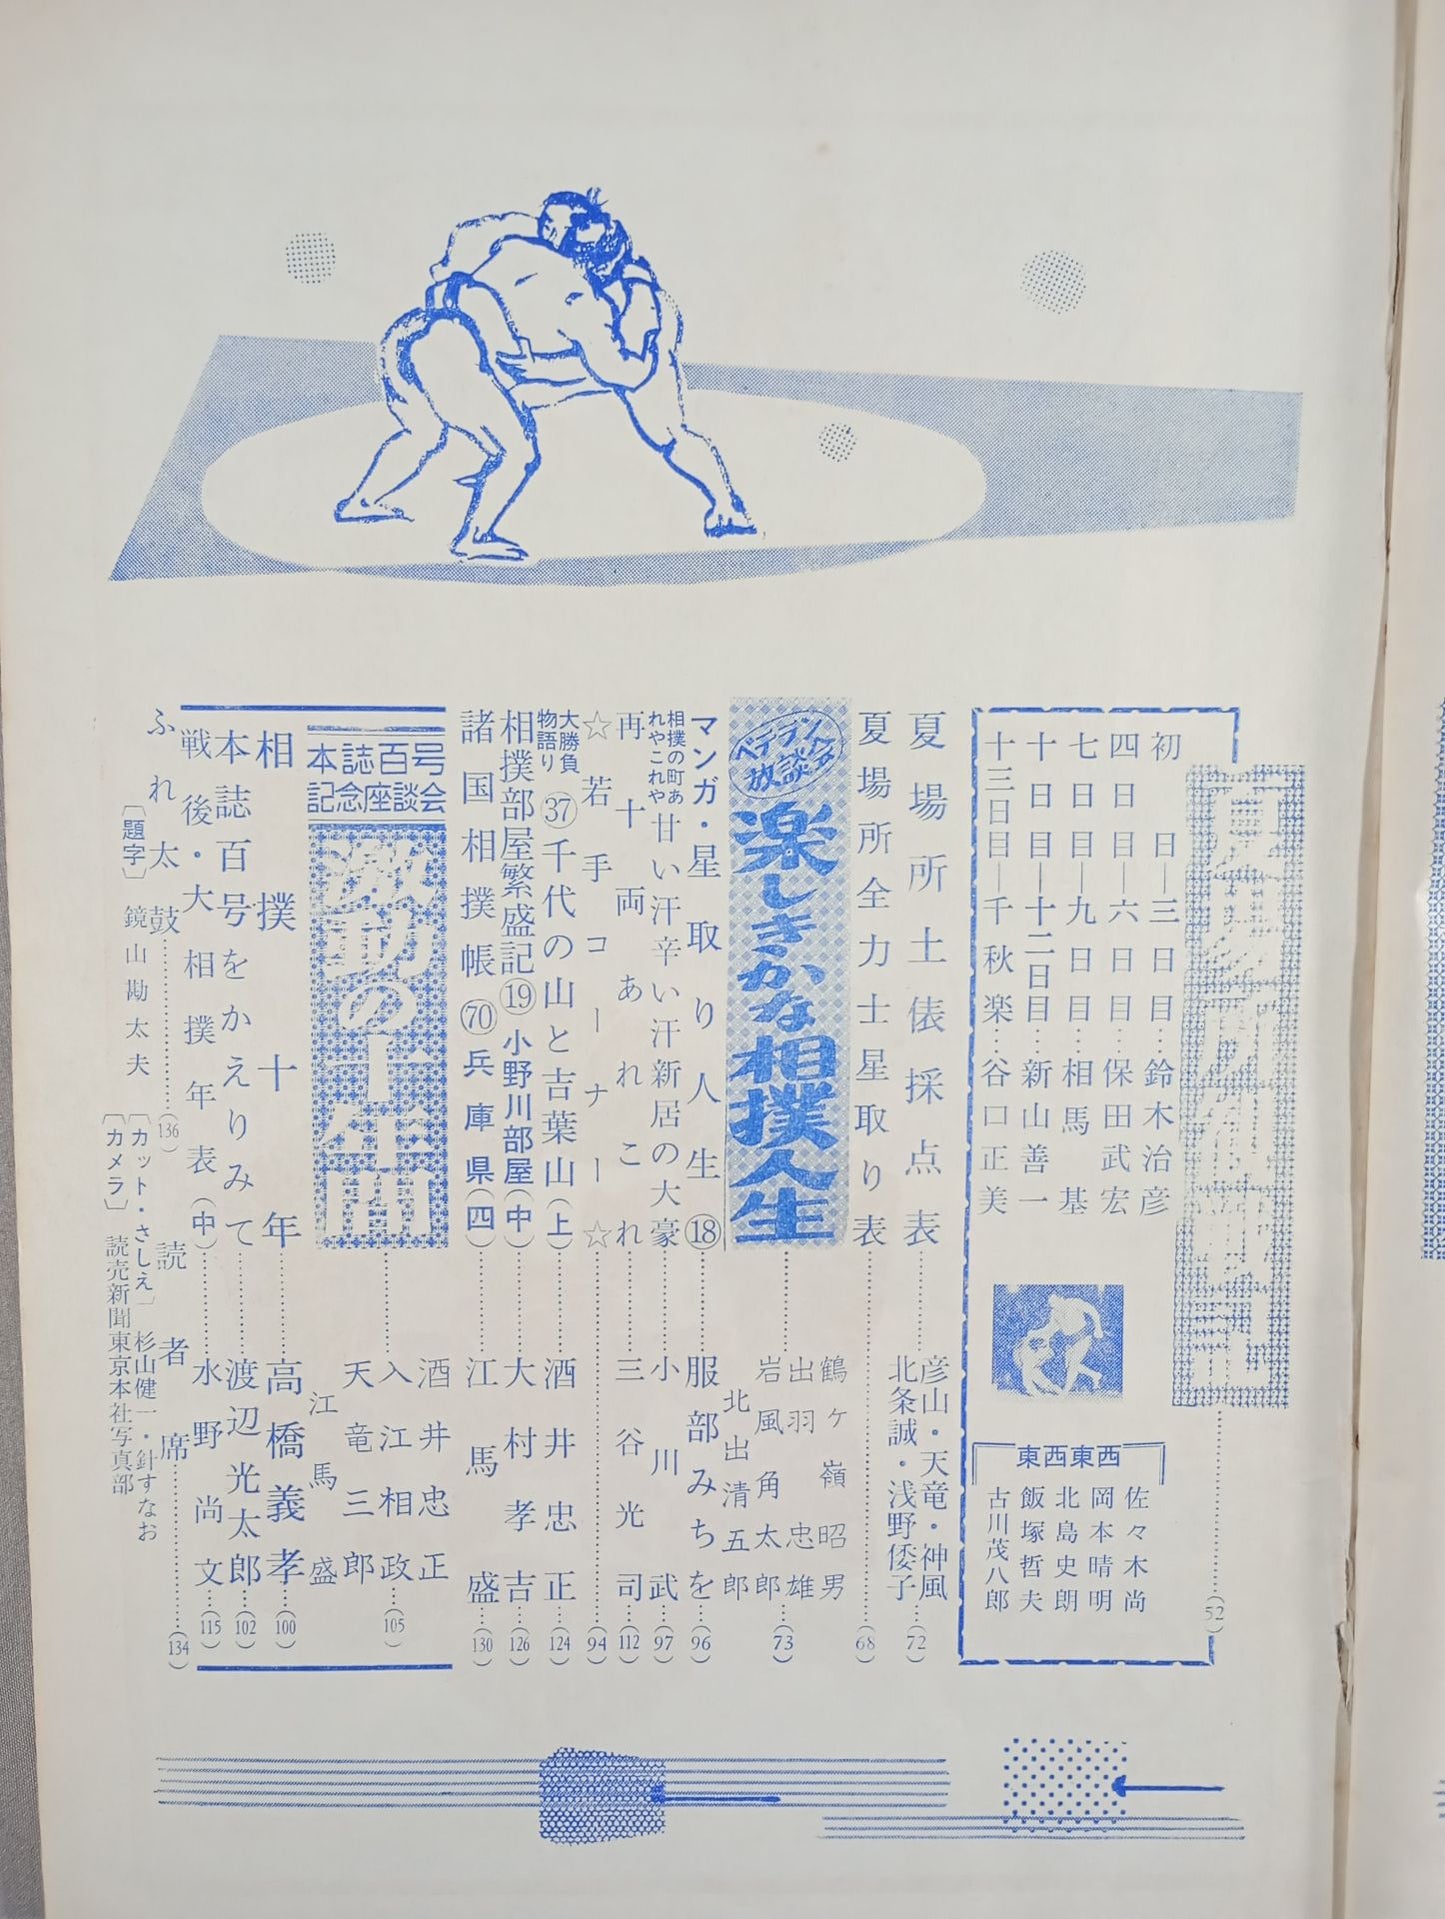 夏場所相撲日記……(52)
初日―三日目…鈴木治彦
四日目―六日目…保田武宏
七日目―九日目…相馬基
十日目―十二日目…新山善一
十三日目―千秋楽…谷口正美
東西東西
佐々木尚
岡本晴明
北島史朗
飯塚哲夫
古川茂八郎
夏場所土俵採点表……彦山・天竜・神風
北条誠・浅野倭子…(72)
夏場所全力士星取り表……(68)
ベテラン放談会
楽しきかな相撲人生……
鶴ヶ嶺昭男
出羽忠雄
岩風角太郎
北出清五郎
(73)
マンガ・星取り人生⑱……服部みちを…(96)
相撲の町あれやこれや
甘い汗辛い汗新居の大豪……小川武…(97)
再十両あれこれ……三谷光司…(112)
☆若手コーナー☆……(94)
大勝負物語り㊲千代の山と吉葉山(上)……酒井忠正…(124)
相撲部屋繁盛記⑲小野川部屋(中)……大村孝吉…(126)
諸国相撲帳70兵庫県(四)……江馬盛…(130)
本誌百号
記念座談会
激動の十年間……
酒井忠正
入江相政
天竜三郎
江馬盛
(105)
相撲十年……高橋義孝…(100)
本誌百号をかえりみて……渡辺光太郎…(102)
戦後・大相撲年表(中)……水野尚文…(115)
ふれ太鼓……(136)
読者席……(134)
〔題字〕鏡山勘太夫
〔カット・さしえ〕杉山健一・針すなお
〔カメラ〕読売新聞東京本社写真部